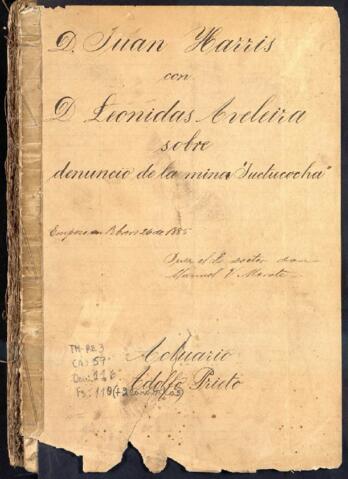 D. Juan Harris
con
D Leonidas Aveleira
sobre
denuncio de la mina "Suctucocha"
Empieza en Febrero 26 de 1885
Juez el Sr Doctor don
Manuel V Morote
TM-RE 3
CA: 59
Doc: 116
Fs: 119 (+2
Actuario
Adolfo Prieto